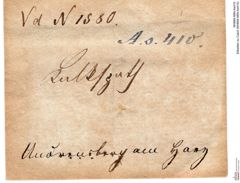 Vd N 1880.
A.s. 410.
Kalkspath
Andreasberg am Harz